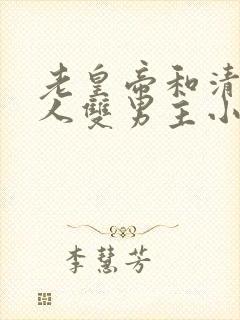 老皇帝和清
人雙男主小
李慧芳